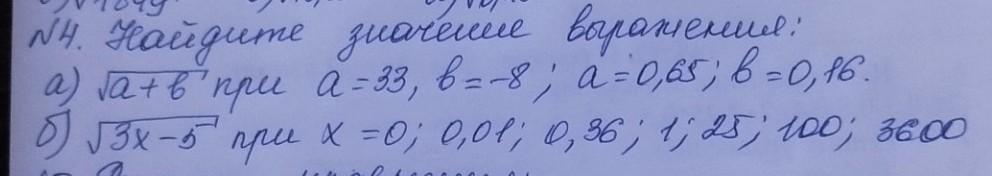 №4. Найдите значение выражения:
а) √a+b при a=33, b=-8; a=0,65; b=0,16.
б) √3x-5 при x=0; 0,01; 0,36; 1; 25; 100; 3600